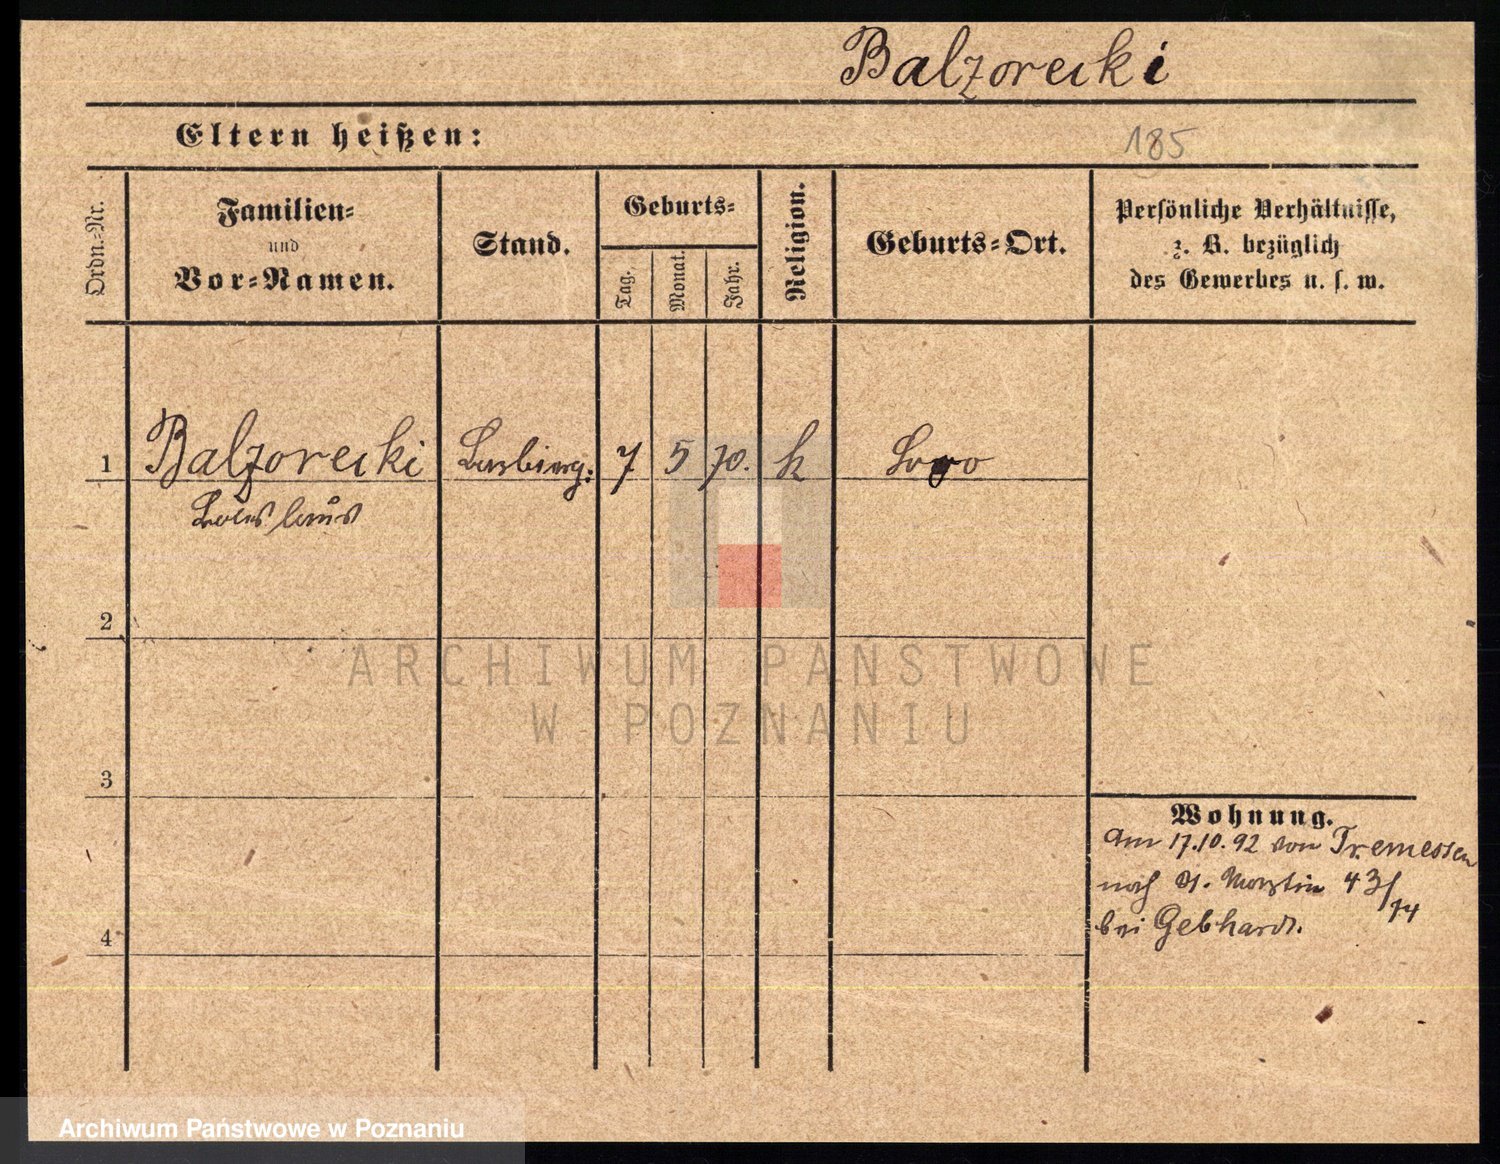 Balzorecki
Eltern heißen:
185
Ordn.-Nr.
Familien-
und
Vor-Namen.
Stand.
Geburts-
Tag.
Monat.
Jahr.
Religion.
Geburts-Ort.
Persönliche Verhältnisse,
z. B. bezüglich
des Gewerbes u. s. w.
1
Balzorecki
7
5
70.
k
2
3
4
Wohnung.
am 17.10.92 von Tremessen
nach St. Martin 43/74
bei Gebhardt.
ARCHIWUM PAŃSTWOWE
W POZNANIU
Archiwum Państwowe w Poznaniu